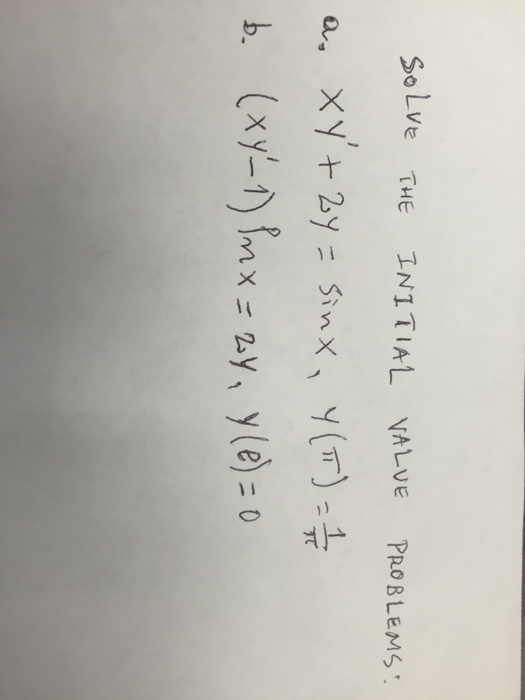 SOLVE THE INITIAL VALUE PROBLEMS:
a. xy' + 2y = sinx, y(π) = 1/π
b. (xy'-1) lnx = 2y, y(e) = 0